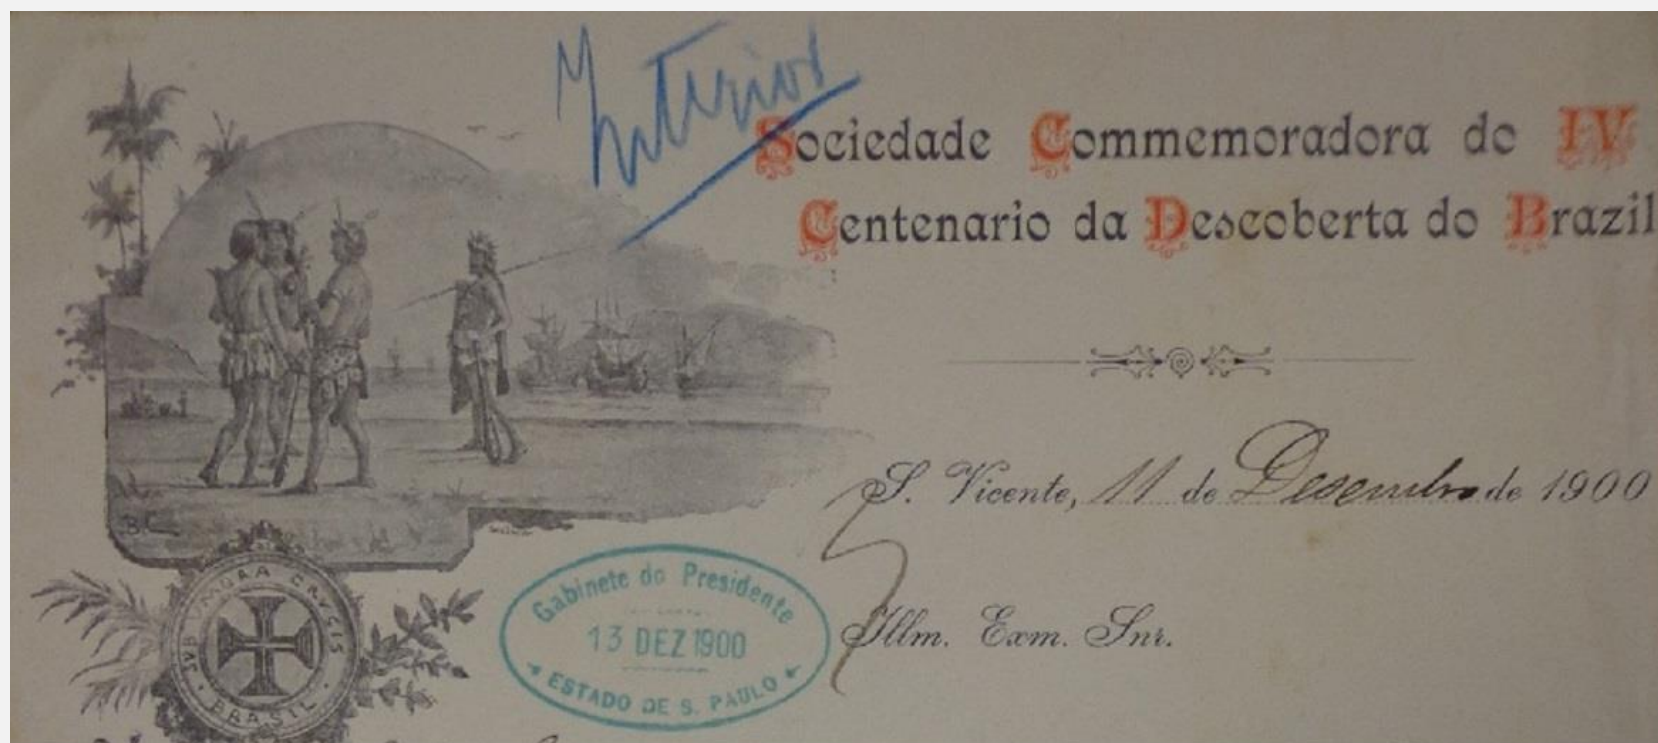 Interior
Sociedade Commemoradora do IV
Centenario da Descoberta do Brazil
S. Vicente, 11 de Desembro de 1900
Illm. Exm. Snr.
Gabinete do Presidente
13 DEZ 1900
ESTADO DE S. PAULO
BC
SUB UMBRA CRUCIS
BRASIL